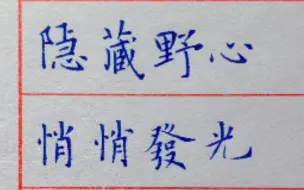 隐藏野心
悄悄發光